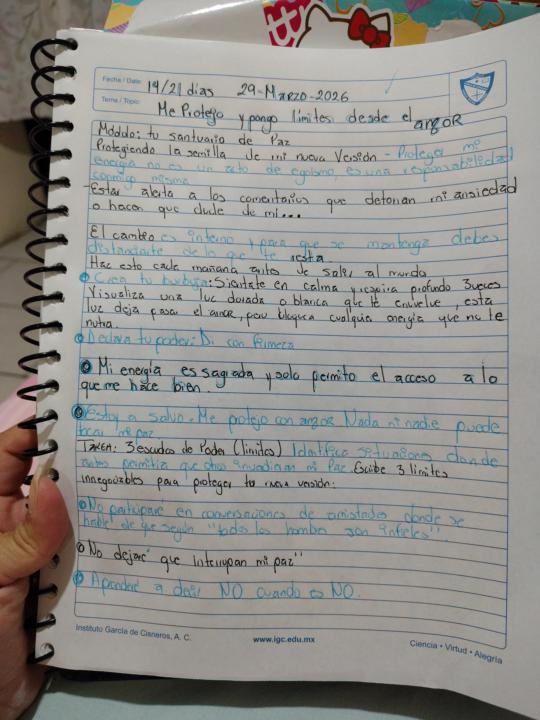 Fecha / Date: 19/21 días 29-Marzo-2026
Tema / Topic: Me Protejo y pongo limites desde el amor
Módulo: tu santuario de Paz
Protegiendo la semilla de mi nueva Versión - Proteger mi
energía no es un acto de egoísmo, es una responsabilidad
conmigo misma
- Estar alerta a los comentarios que detonan mi ansiedad
o hacen que dude de mi...
El cambio es interno y para que se mantenga debes
distanciarte de lo que te resta.
Haz esto cada mañana antes de salir al mundo
Crea tu burbuja: Siéntate en calma y respira profundo 3 veces
Visualiza una luz dorada o blanca que te envuelve, esta
luz deja pasar el amor, pero bloquea cualquier energía que no te
nutra.
Declara tu poder: Di con firmeza
Mi energía es sagrada y solo permito el acceso a lo
que me hace bien.
Estoy a salvo. Me protejo con amor Nada ni nadie puede
tocar mi paz
Tarea: 3 escudos de Poder (limites) Identifica situaciones donde
antes permitía que otros invadieran mi Paz. Escibe 3 limites
innegociables para proteger tu nueva versión:
No participare en conversaciones de amistades donde se
hable de que según "todos los hombes son infieles"
No dejaré que interrumpan mi paz"
Aprenderé a decir NO cuando es NO.
Instituto García de Cisneros, A. C. www.igc.edu.mx Ciencia • Virtud • Alegría